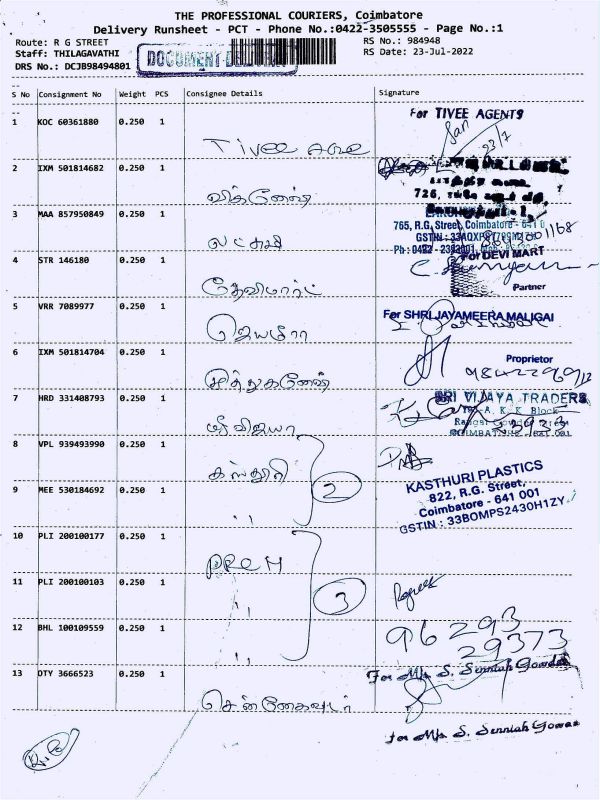 THE PROFESSIONAL COURIERS, Coimbatore
Delivery Runsheet - PCT - Phone No.:0422-3505555 - Page No.:1
Route: R G STREET
RS No.: 984948
Staff: THILAGAVATHI
RS Date: 23-Jul-2022
DRS No.: DCJB98494801
DOCUMENT DELIVERY
S No Consignment No Weight PCS Consignee Details Signature
For TIVEE AGENTS
1 KOC 60361880 0.250 1
23/7
2 IXM 501814682 0.250 1
விக்னேஷ்
726,
3 MAA 857950849 0.250 1
765, R.G. Street, Coimbatore - 641 0
லட்சுமி
4 STR 146180 0.250 1
For DEVI MART
தேவிமார்ட்
Partner
5 VRR 7089977 0.250 1
For SHRI JAYAMEERA MALIGAI
ஜெயமீரா
6 IXM 501814704 0.250 1
Proprietor
7 HRD 331408793 0.250 1
SRI VIJAYA TRADERS
A. K. K Block
ஸ்ரீவிஜயா
COIMBATORE - 641 001
8 VPL 939493990 0.250 1
கஸ்தூரி
2
KASTHURI PLASTICS
822, R.G. Street,
Coimbatore - 641 001
GSTIN : 33BOMPS2430H1ZY
9 MEE 530184692 0.250 1
,,
10 PLI 200100177 0.250 1
PREM
3
11 PLI 200100103 0.250 1
,,
12 BHL 100109559 0.250 1
96293
29373
,,
13 OTY 3666523 0.250 1
For M/s S. Senniah Gowder
சென்னைகவுடர்
For M/s S. Senniah Gowder